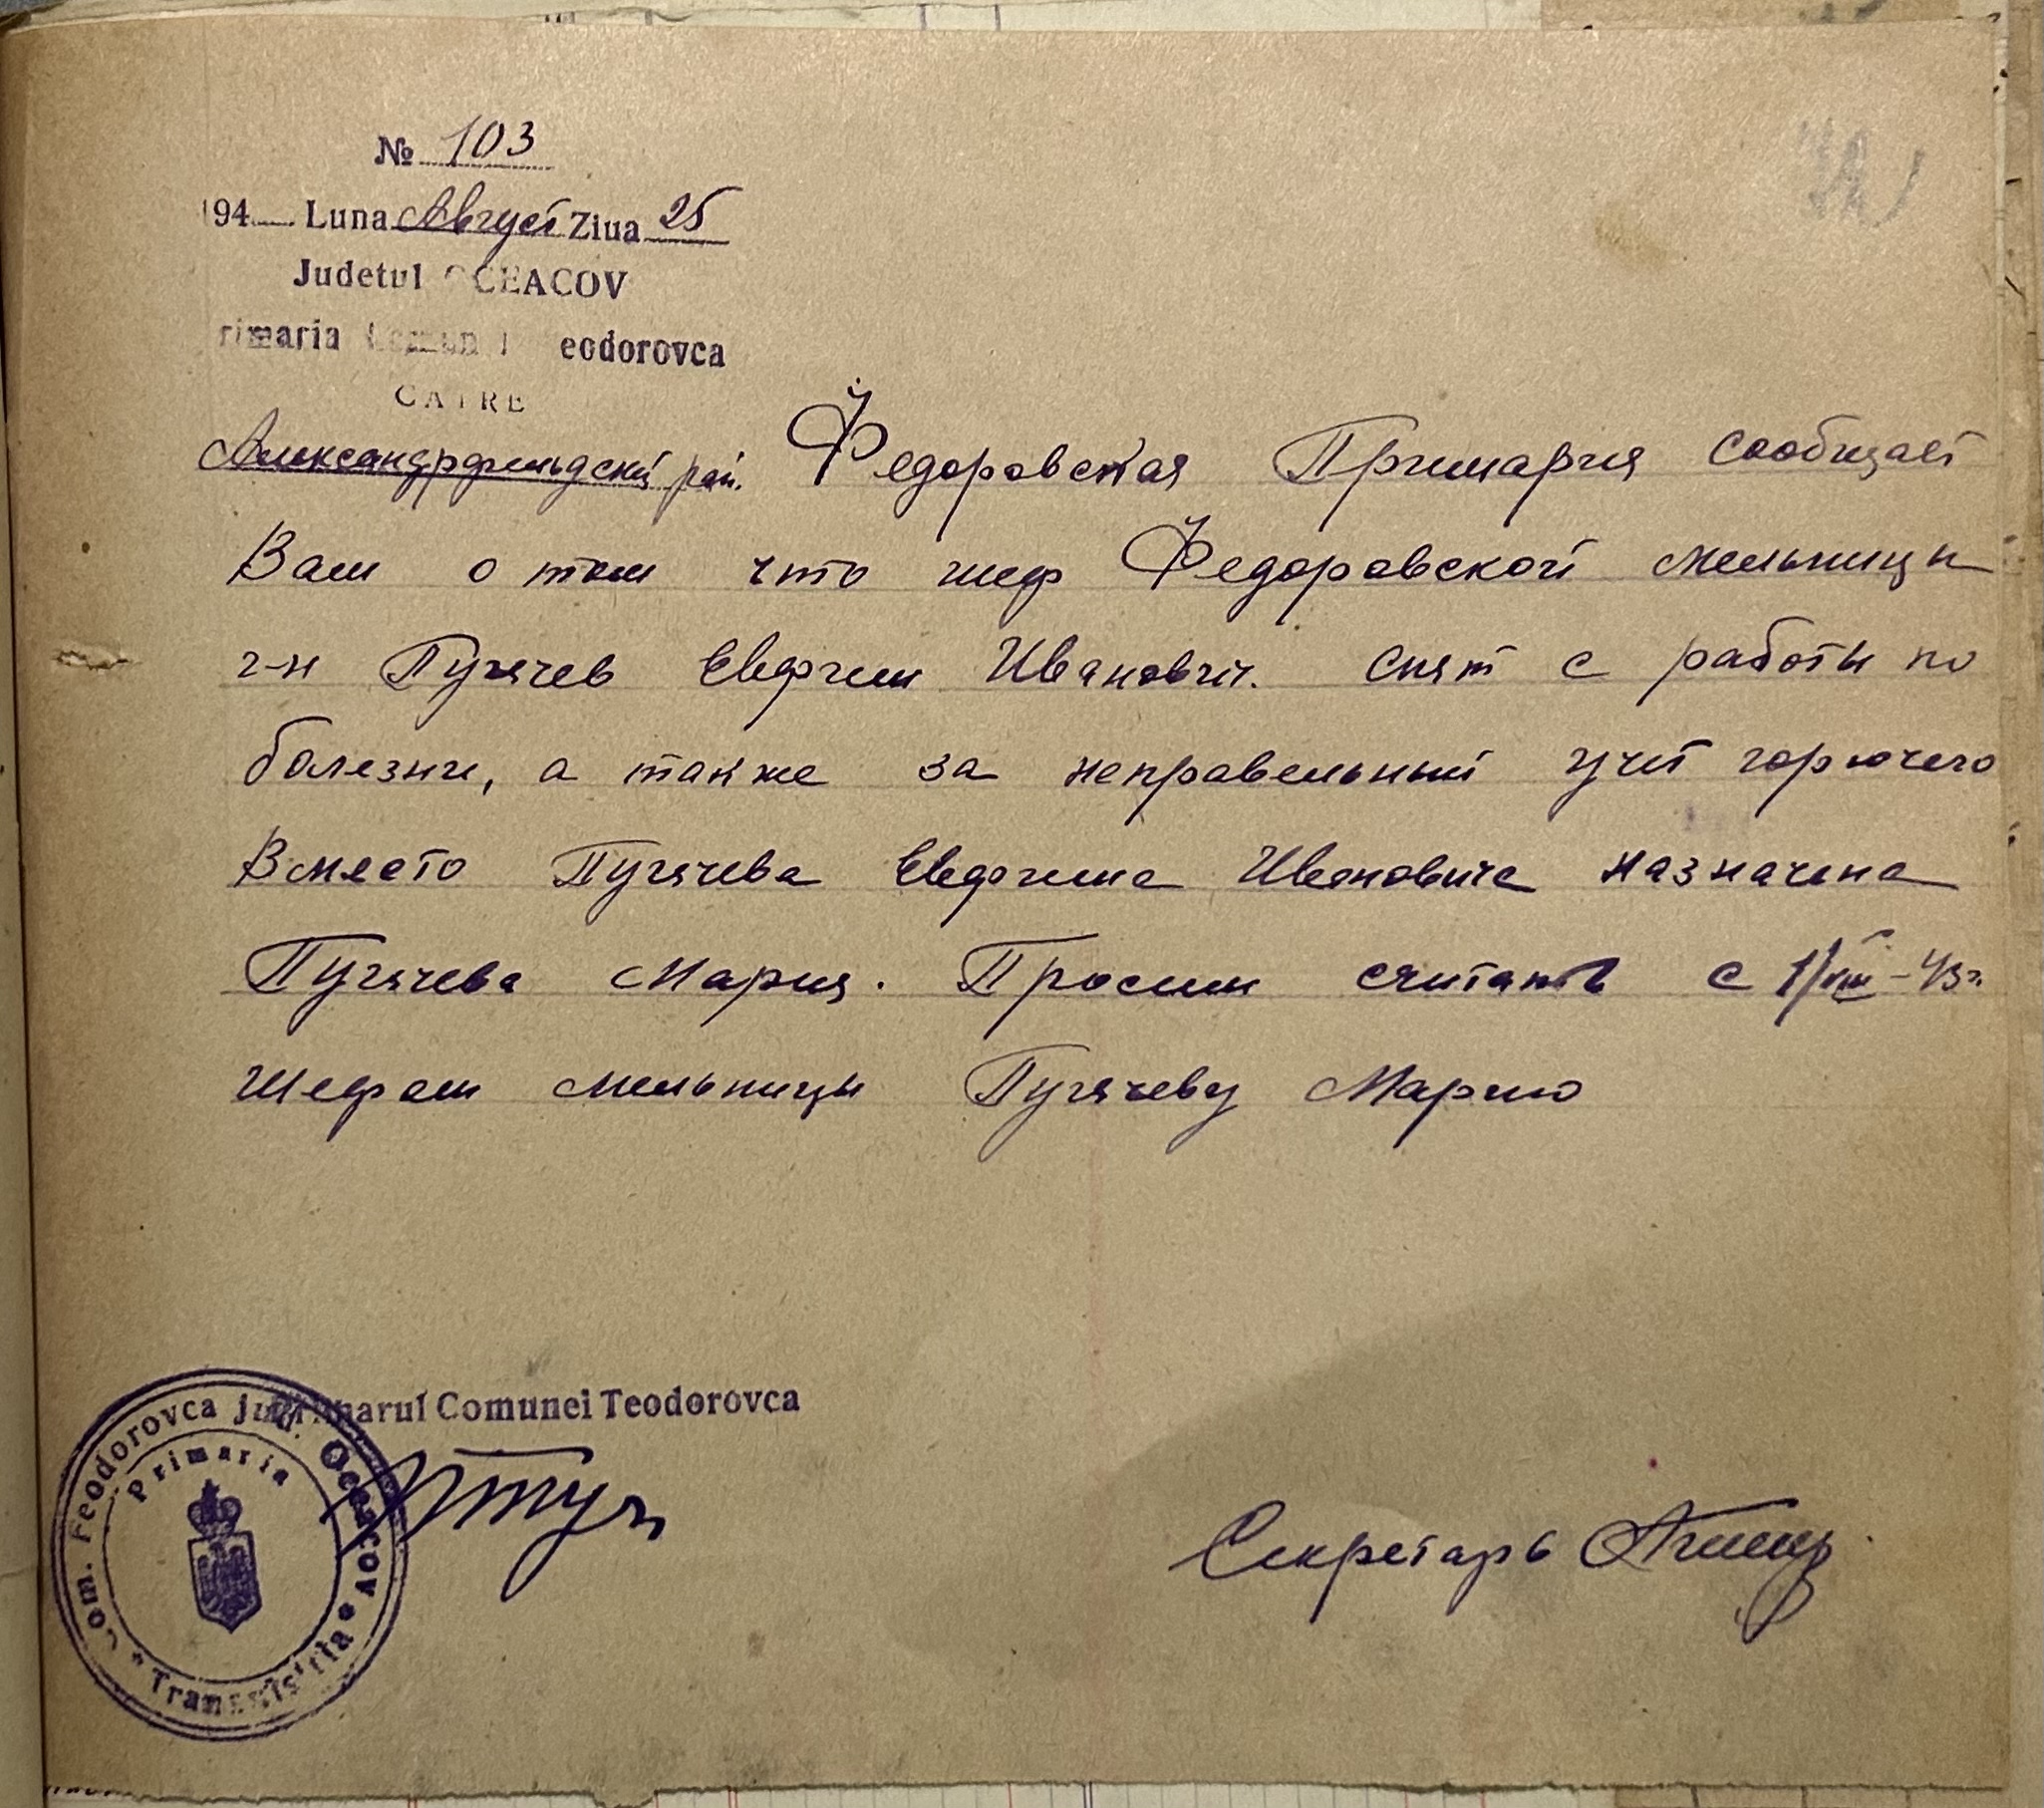 № 103
194 Luna Август Ziua 25
Judetul OCEACOV
rimaria Comun eodorovca
CATRE
Александрфельдский рай. Федоровская Примария сообщает
Вам о том что шеф Федоровской мельницы
г-н Пугачев Евфгим Иванович. снят с работы по
болезни, а также за неправельный учет горючего
Вместо Пугачева Евфгима Ивановича назначена
Пугачева Мария. Просим считать с 1/VIII-43г.
Шефом мельницы Пугачеву Марию
Primarul Comunei Teodorovca
Com. Feodorovca Jud. Oceacov
Primaria
* Transnistria *
Секретарь